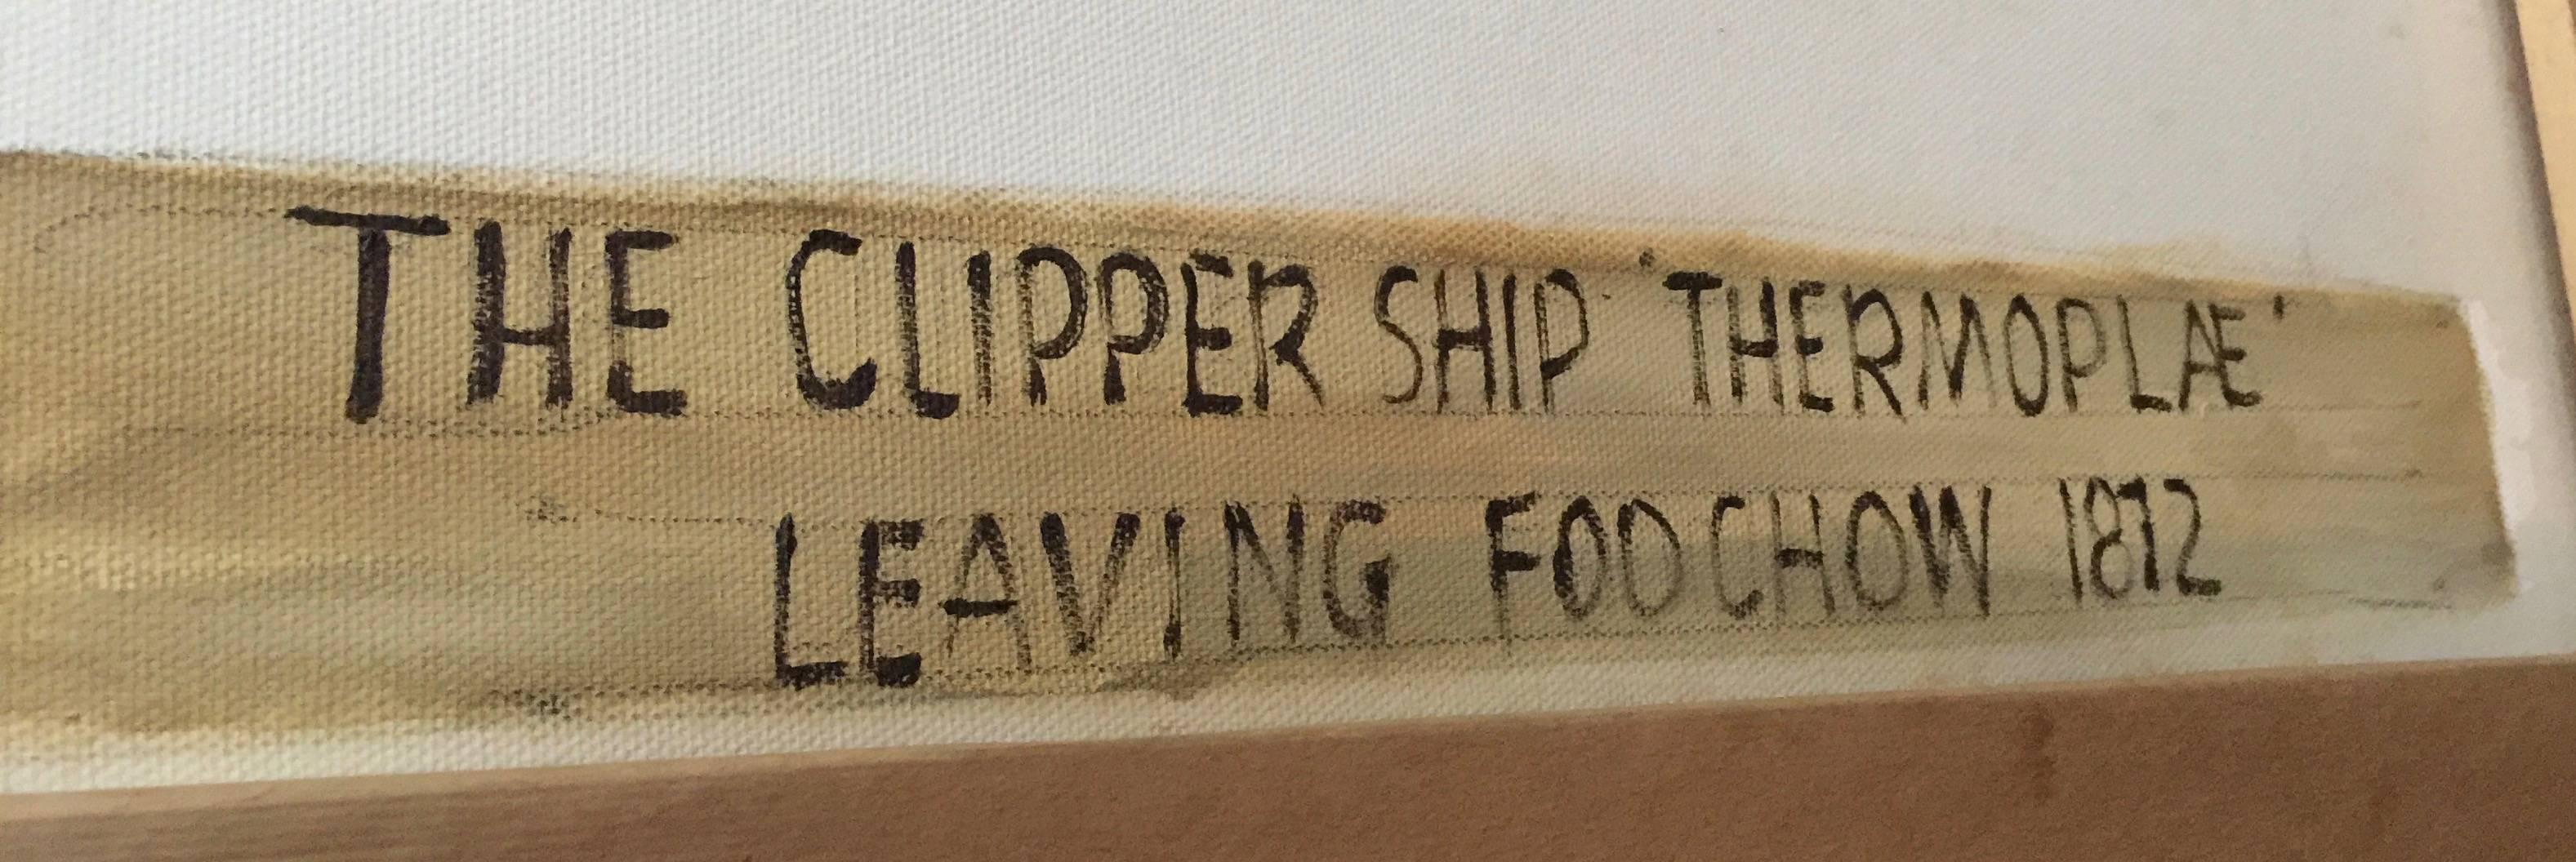 THE CLIPPER SHIP 'THERMOPLÆ'
LEAVING FOOCHOW 1872